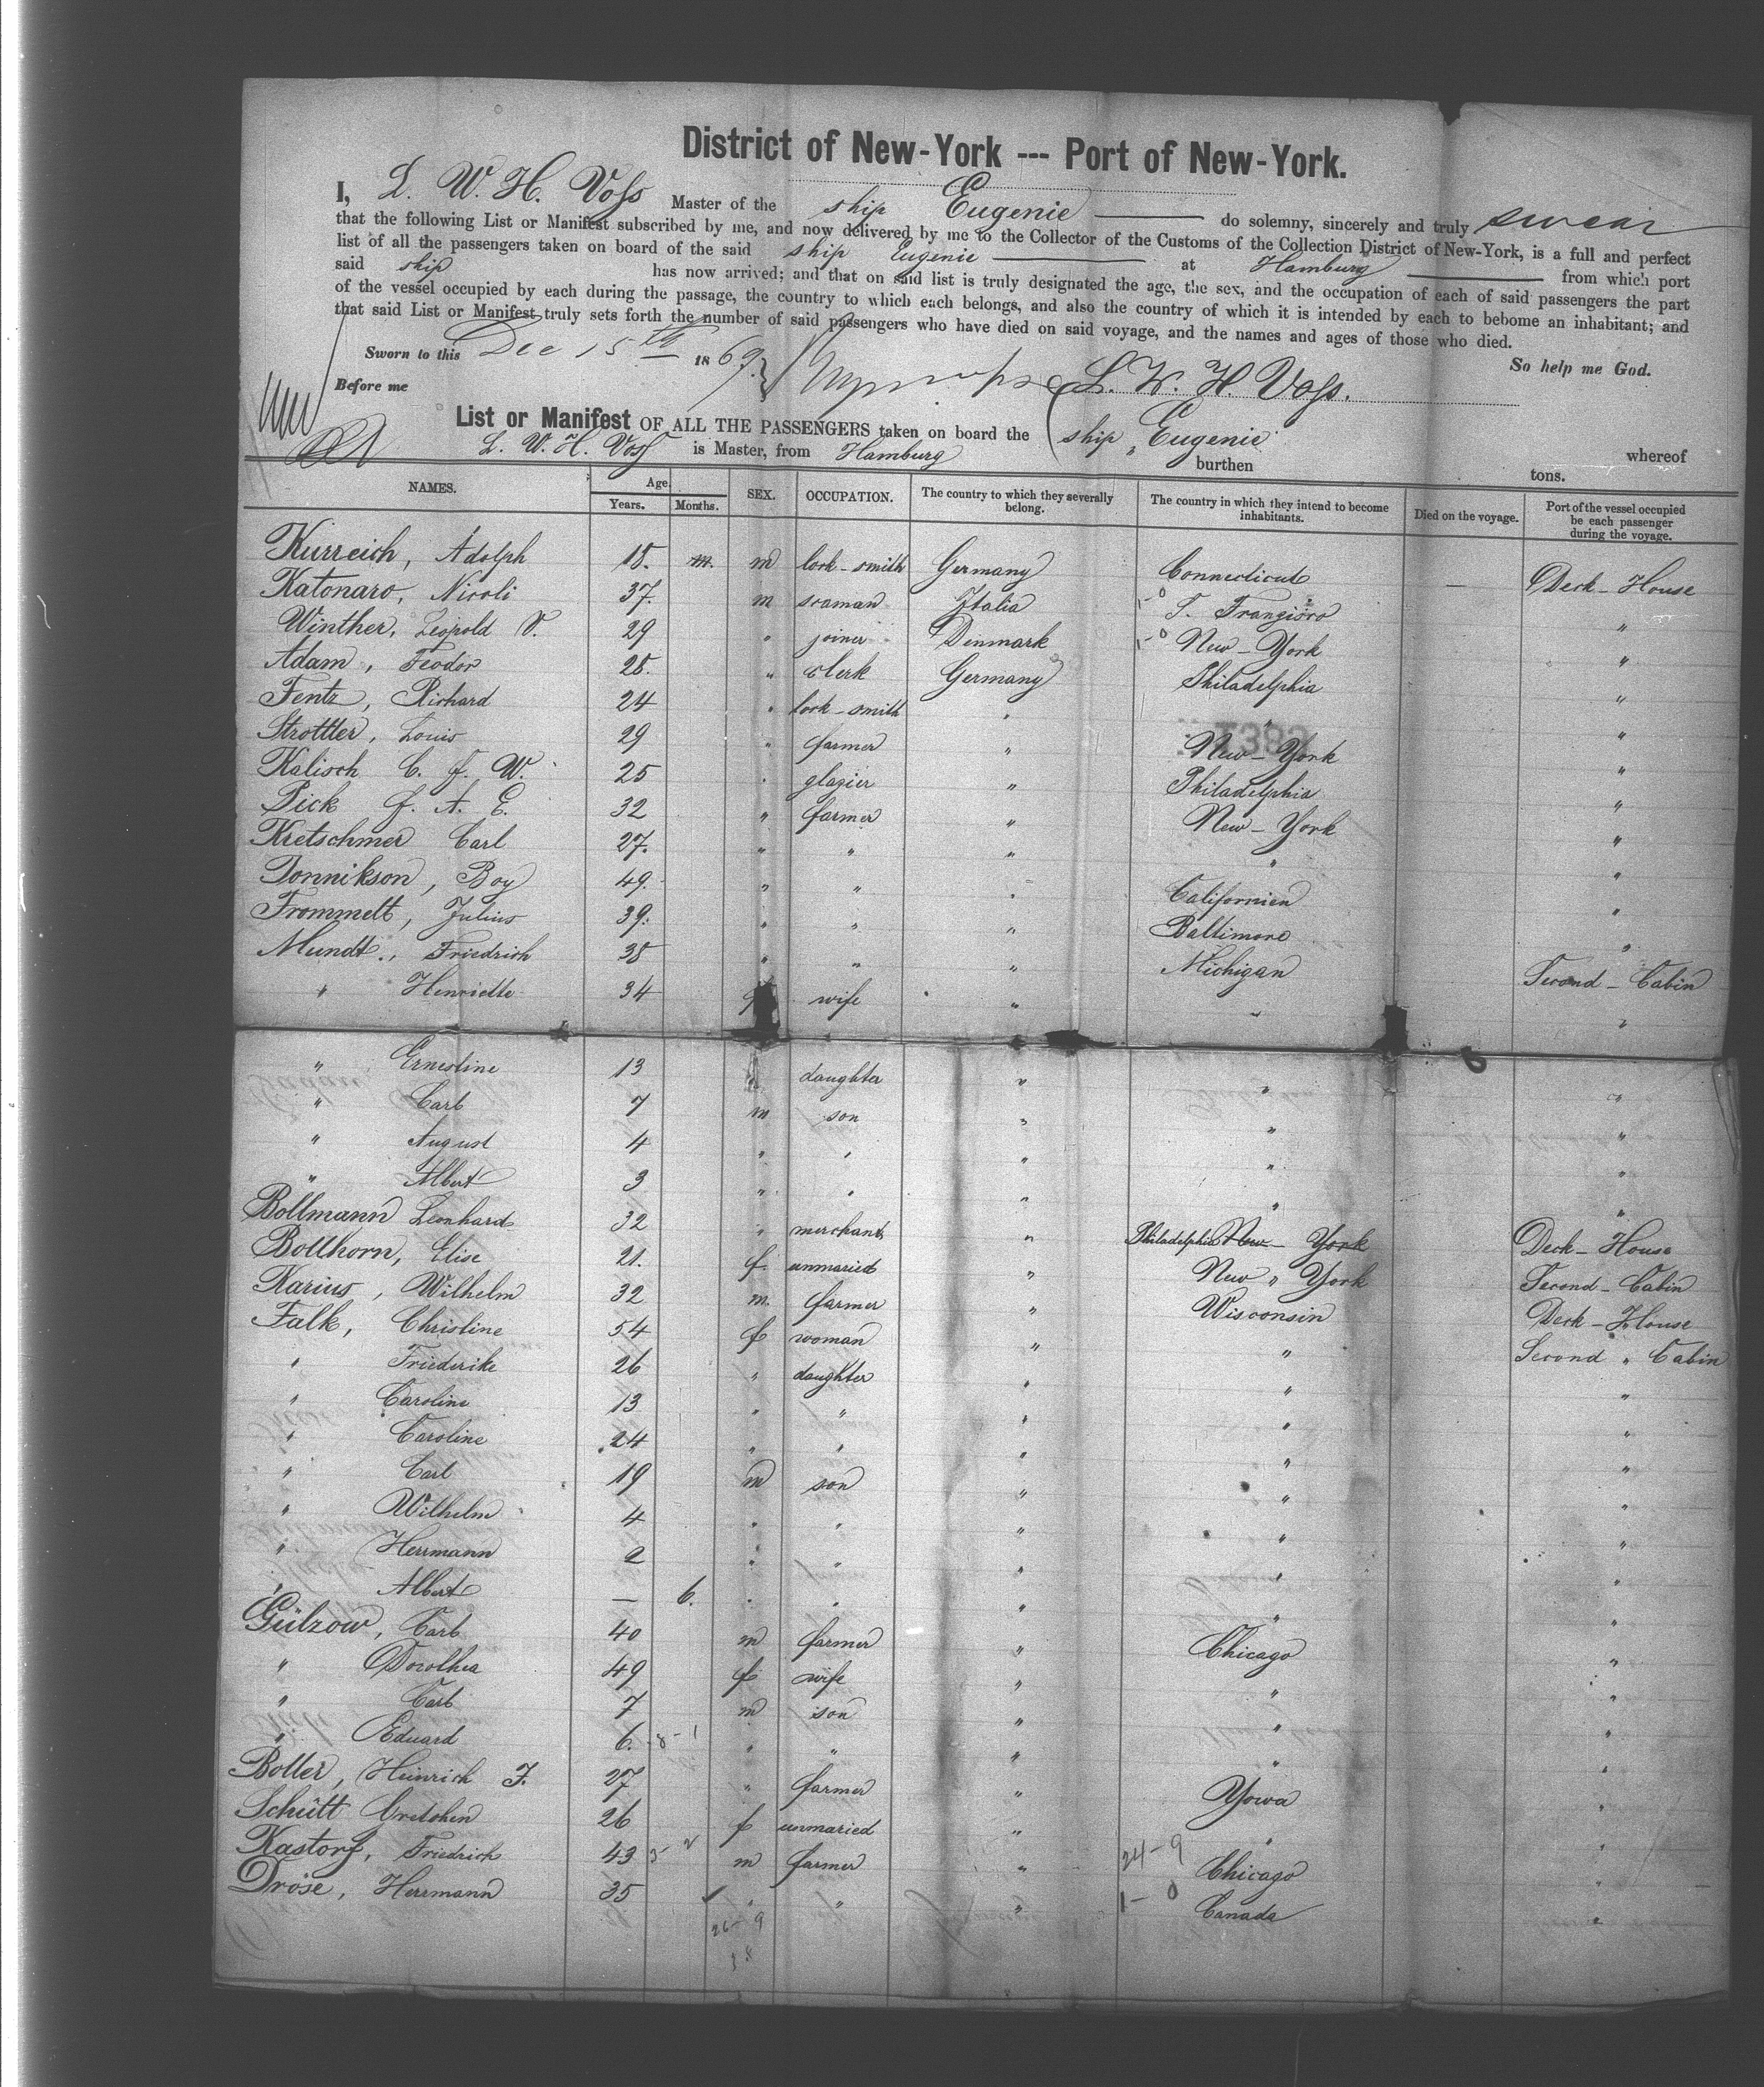 District of New-York --- Port of New-York.
I, L. W. H. Voss Master of the ship Eugenie do solemny, sincerely and truly swear
that the following List or Manifest subscribed by me, and now delivered by me to the Collector of the Customs of the Collection District of New-York, is a full and perfect
list of all the passengers taken on board of the said ship Eugenie at Hamburg from which port
said ship has now arrived; and that on said list is truly designated the age, the sex, and the occupation of each of said passengers the part
of the vessel occupied by each during the passage, the country to which each belongs, and also the country of which it is intended by each to bebome an inhabitant; and
that said List or Manifest truly sets forth the number of said passengers who have died on said voyage, and the names and ages of those who died.
So help me God.
Sworn to this Dec 15th 1869. L. W. H. Voss.
Before me
List or Manifest OF ALL THE PASSENGERS taken on board the ship „ Eugenie whereof
L. W. H. Voss is Master, from Hamburg burthen tons.
NAMES. Age. Years. Months. SEX. OCCUPATION. The country to which they severally belong. The country in which they intend to become inhabitants. Died on the voyage. Port of the vessel occupied be each passenger during the voyage.
Kurreich, Adolph 18. m. m lock-smith Germany Connecticut — Deck-House
Katonaro, Nicoli 37. m seaman Italia 1-0 S. Frangisco "
Winther, Leopold V. 29 " joiner Denmark 1-0 New-York "
Adam, Feodor 28. " clerk Germany Philadelphia "
Fentz, Richard 24 " lock-smith " " "
Strottler, Louis 29 " farmer " New-York "
Kalisch C. F. W. 25 " glazier " Philadelphia "
Pick F. A. E. 32 " farmer " New-York "
Kretschmer Carl 27. " " " " "
Donnikson, Boy 49. " " " Californien "
Frommelt, Julius 39. " " " Baltimore "
Mundt, Friedrich 38 " " " Michigan Second-Cabin
" Henriette 34 f wife " " "
" Ernestine 13 " daughter " " "
" Carl 7 m son " " "
" August 4 " " " " "
" Albert 3 " " " " "
Bollmann Leonhard 32 " merchant " Philadelphia New-York Deck-House
Bollhorn, Elise 21. f. unmaried " New " York Second-Cabin
Karius, Wilhelm 32 m. farmer " Wisconsin Deck-House
Falk, Christine 54 f woman " " Second " Cabin
" Friederike 26 " daughter " " "
" Caroline 13 " " " " "
" Caroline 24 " " " " "
" Carl 19 m son " " "
" Wilhelm 4 " " " " "
" Herrmann 2 " " " " "
" Albert — 6. " " " " "
Gülzow, Carl 40 m farmer " Chicago "
" Dorothea 49 f wife " " "
" Carl 7 m son " " "
" Eduard 6. 8-1 " " " " "
Botter, Heinrich F. 27 " farmer " Yowa "
Schütt Gretchen 26 f unmaried " " "
Kastorf, Friedrich 43 m farmer " 24-9 Chicago "
Dröse, Herrmann 35 " " " 1-0 Canada "
26-9